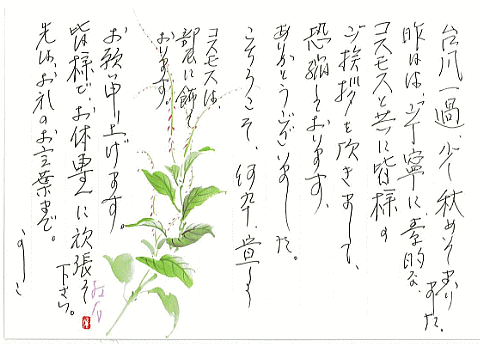 台風一過、少々秋めいて参りました。
昨日は、ご丁寧に、素的な
コスモスと共に皆様の
ご挨拶を頂きまして、
恐縮しております。
ありがとうございました。
こちらこそ、何卒、宜しく
お願い申し上げます。
コスモスは、
部屋に飾って
おります。
皆様で、お体専一に頑張って
下さい。
先は、お礼のお言葉まで。